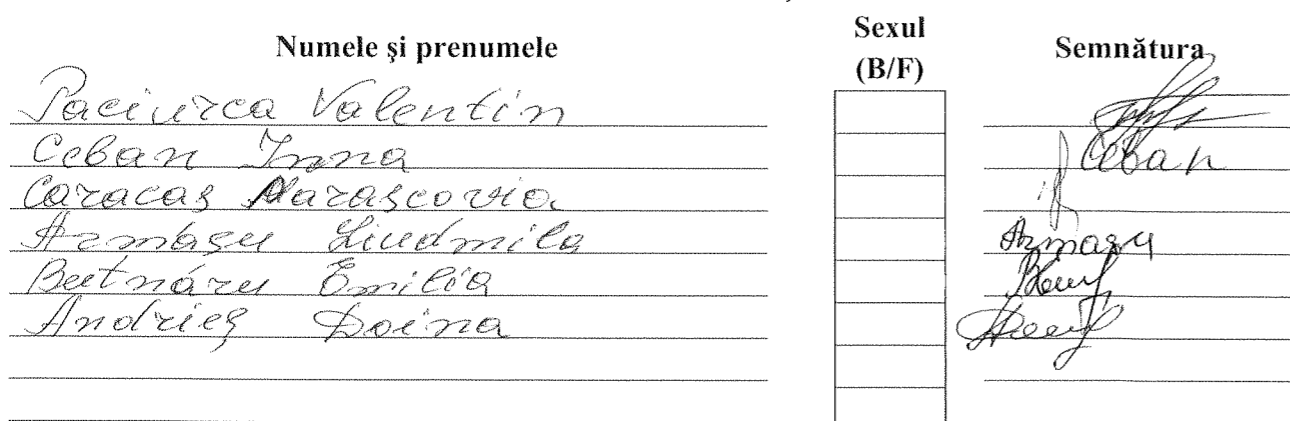 Numele şi prenumele Sexul (B/F) Semnătura
Paciurca Valentin
Ceban Inna Ceban
Caracaş Parascovia
Armaşu Liudmila Armaşu
Butnaru Emilia
Andrieş Doina